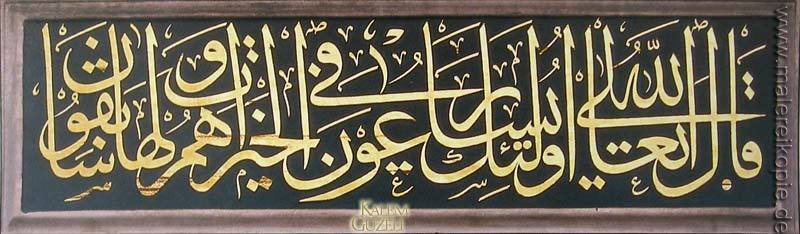 قال الله تعالى اولئك يسارعون في الخيرات وهم لها سابقون
KALEM GÜZELİ
www.malereikopie.de